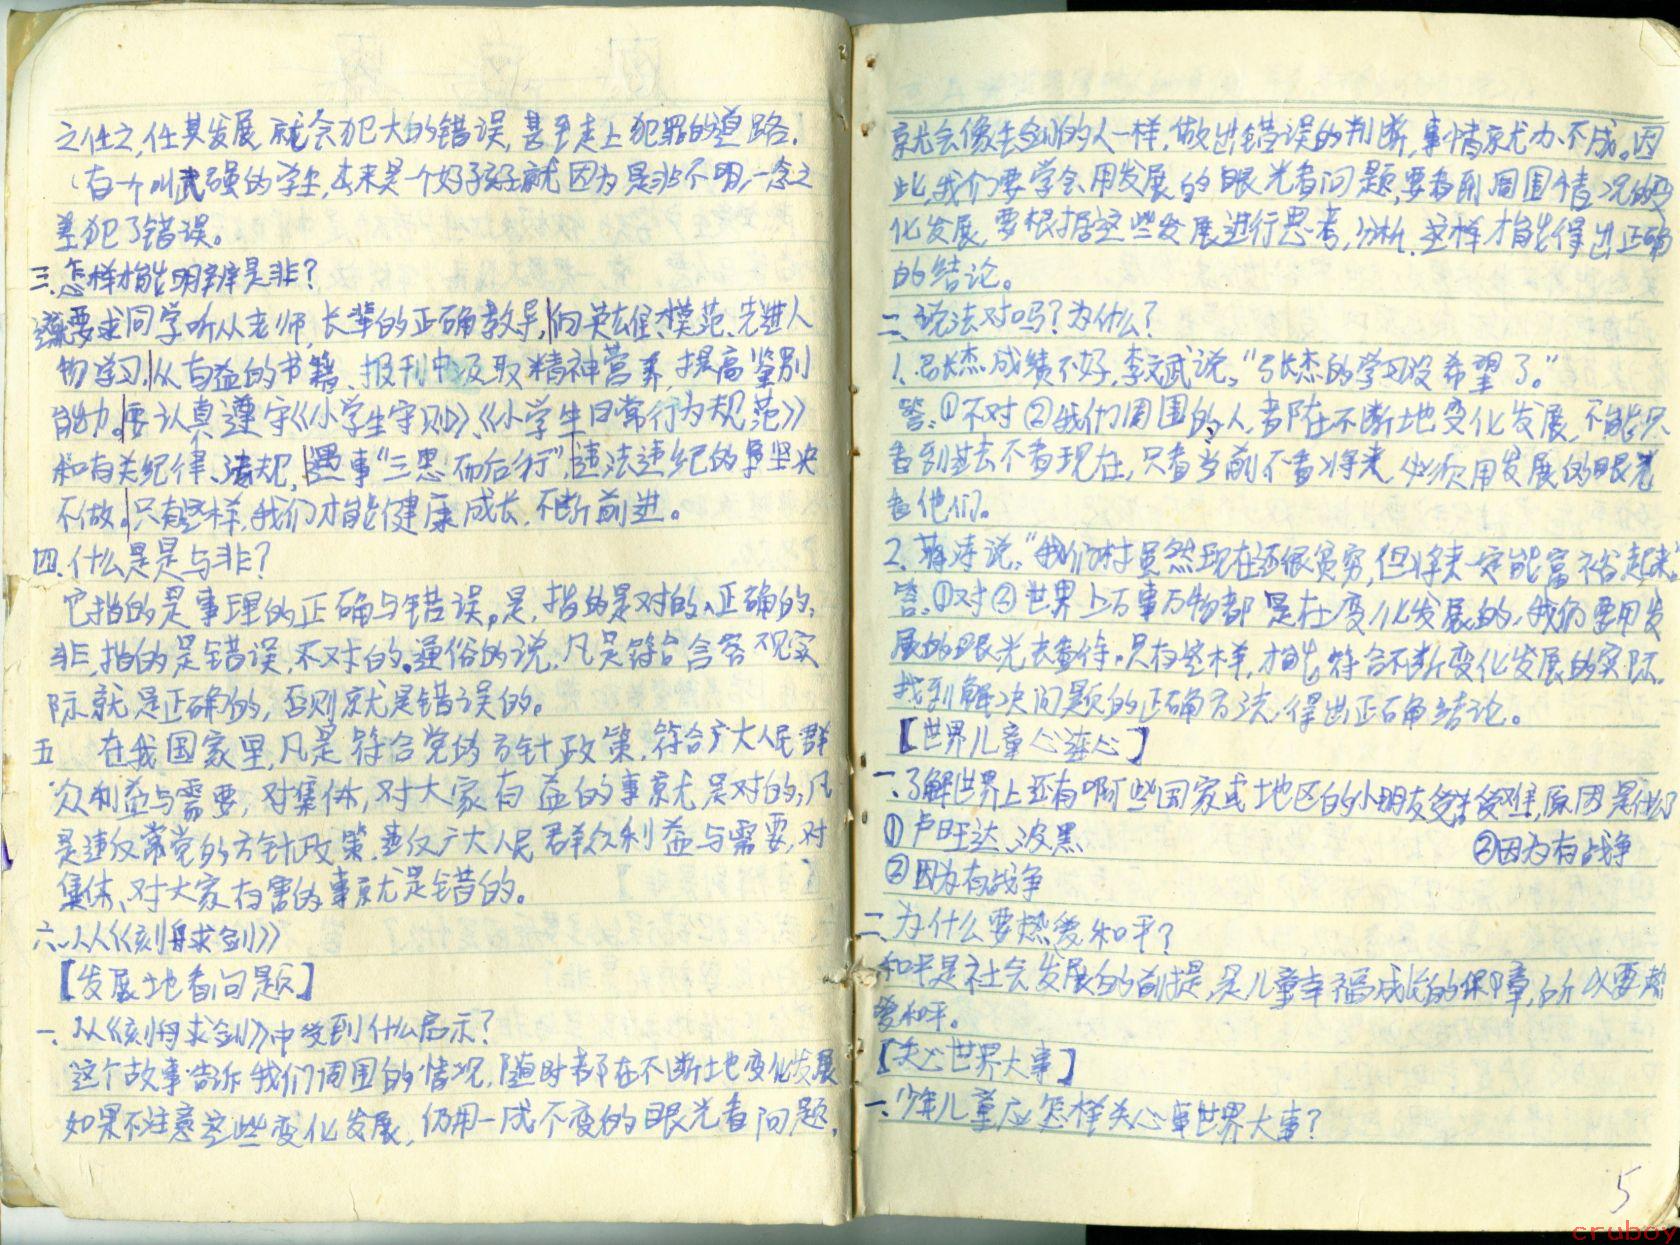 之任之,任其发展就会犯大的错误,甚至走上犯罪的道路.
(有一个叫武强的学生,本来是一个好孩子就因为是非不明,一念之
差犯了错误。
三.怎样才能明辨是非?
要求同学听从老师,长辈的正确教导,向英雄、模范、先进人
物学习,从有益的书籍、报刊中汲取精神营养,提高鉴别
能力,要认真遵守《小学生守则》、《小学生日常行为规范》
和有关纪律、法规,遇事“三思而后行”,违法违纪的事坚决
不做。只有这样,我们才能健康成长,不断前进。
四.什么是是与非?
它指的是事理的正确与错误。是,指的是对的、正确的;
非,指的是错误,不对的。通俗的说,凡是符合客观实
际就是正确的,否则就是错误的。
五 在我国家里,凡是符合党的方针政策,符合广大人民群
众利益与需要,对集体,对大家有益的事就是对的;凡
是违反党的方针政策,违反广大人民群众利益与需要,对
集体、对大家有害的事就是错的。
六.从《刻舟求剑》
【发展地看问题】
一.从《刻舟求剑》中受到什么启示?
这个故事告诉我们周围的情况,随时都在不断地变化发展
如果不注意这些变化发展,仍用一成不变的眼光看问题,
就会像丢剑的人一样,做出错误的判断,事情就办不成。因
此,我们要学会用发展的眼光看问题,要看到周围情况的变
化发展,要根据这些发展进行思考,分析,这样才能得出正确
的结论。
二.说法对吗?为什么?
1.马长杰成绩不好,李文武说:“马长杰的学习没希望了。”
答:①不对②我们周围的人,都在不断地变化发展,不能只
看到过去不看现在,只看当前不看将来,必须用发展的眼光
看他们。
2.蒋涛说:“我们村虽然现在还很贫穷,但将来一定能富裕起来”
答:①对②世界上万事万物都是在变化发展的,我们要用发
展的眼光去看待。只有这样,才能符合不断变化发展的实际,
找到解决问题的正确方法,得出正确结论。
【世界儿童心连心】
一.了解世界上还有哪些国家或地区的小朋友受苦受难,原因是什么
①卢旺达、波黑 ②因为有战争
②因为有战争
二.为什么要热爱和平?
和平是社会发展的前提,是儿童幸福成长的保障,所以要热
爱和平。
【关心世界大事】
一.少年儿童应怎样关心世界大事?
5
cruboy